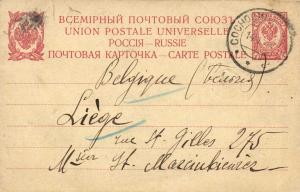 ВСЕМІРНЫЙ ПОЧТОВЫЙ СОЮЗЪ
UNION POSTALE UNIVERSELLE
РОССІЯ—RUSSIE
ПОЧТОВАЯ КАРТОЧКА—CARTE POSTALE
Belgique
Liège
rue St. Gilles 275
St. Marcinkiewicz